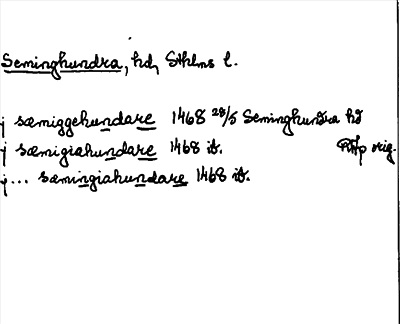 Seminghundra, hd, Sthlms l.
j sæmiggehundare 1468 28/5 Seminghundra hd
j sæmigiahundare 1468 ib. orig.
j... sæmingiahundare 1468 ib.